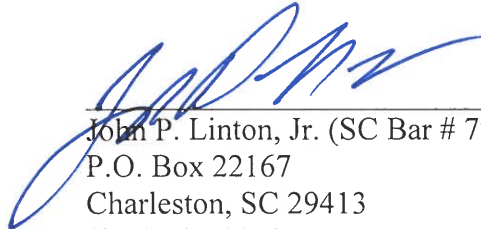 John P. Linton, Jr. (SC Bar # 7
P.O. Box 22167
Charleston, SC 29413